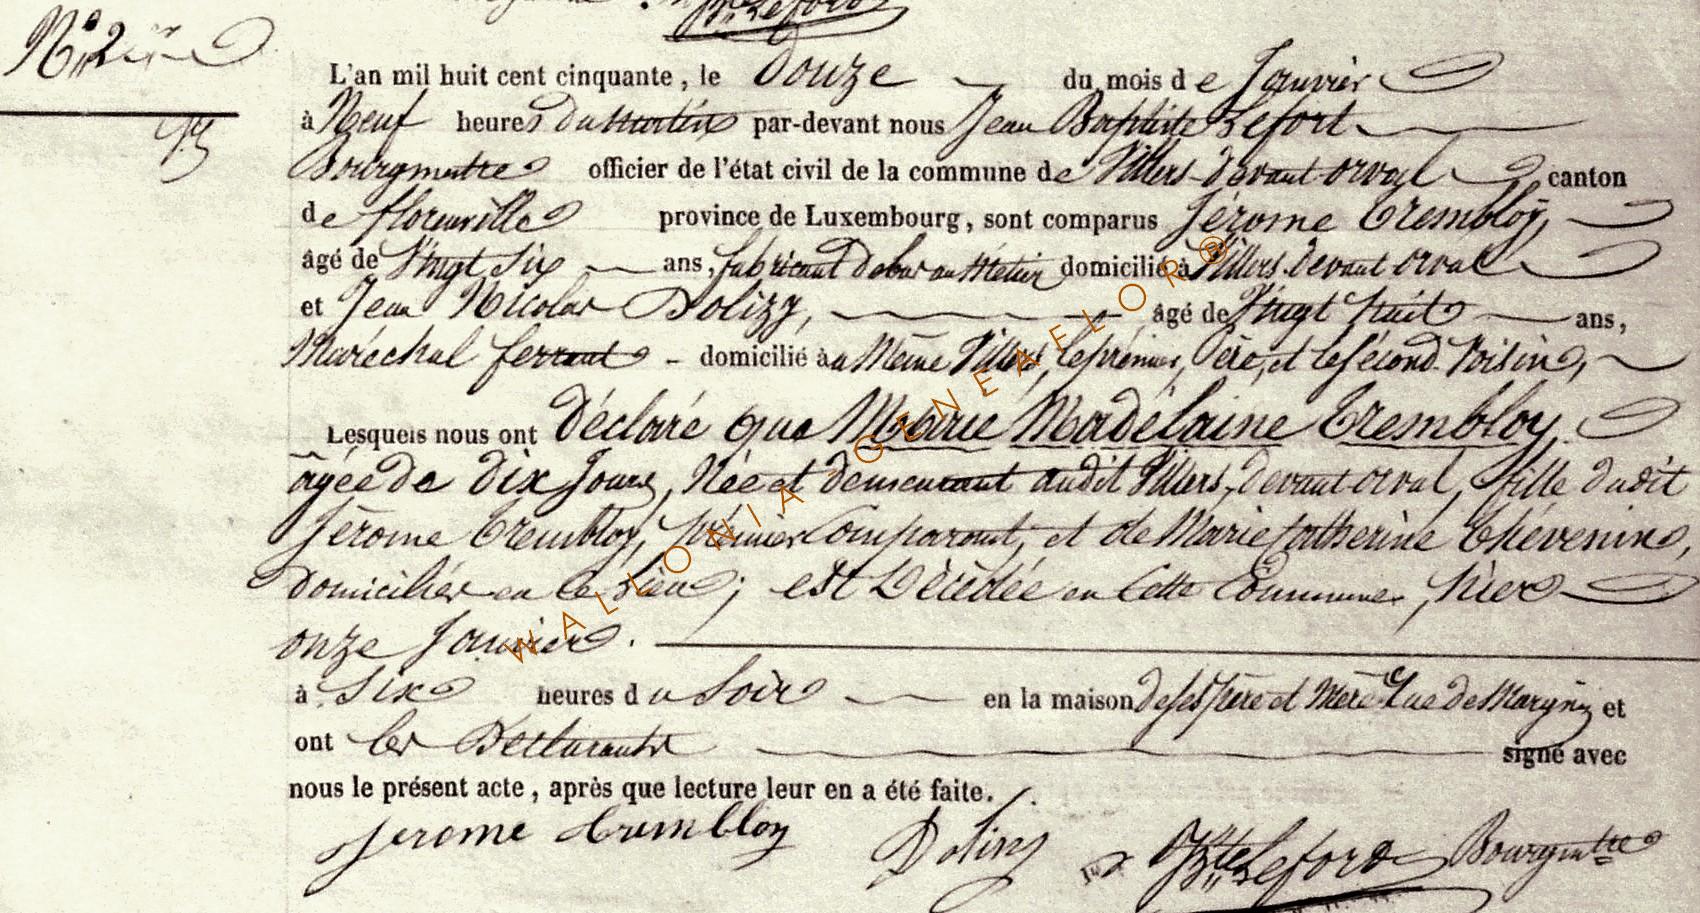 N° 2
L'an mil huit cent cinquante, le Douze du mois de Janvier
à Neuf heures du Matin par-devant nous Jean Baptiste Lefort
Bourgmetre officier de l'état civil de la commune de Villers-devant orval canton
de florenville province de Luxembourg, sont comparus Jérome Trembloy,
âgé de Vingt Six ans, fabricant de bas au Métier domicilié à Villers devant orval
et Jean Nicolas Dolizy, âgé de Vingt huit ans,
Maréchal ferrant domicilié au Même Villers, le prémier, Père, et le Sécond Voisin,
Lesquels nous ont Déclaré que Marie Madélaine Trembloy
agée de dix Jours, Née et demeurant audit Villers, devant orval, fille dudit
Jérome Trembloy, prémier Comparant, et de Marie Catherine Thévenin,
domiciliés en ce Lieu; est Décédée en Cette Commune, hier
onze Janvier.
à Six heures du Soir en la maison de ses Père et Mère Rue de Margny et
ont les Déclarants signé avec
nous le présent acte, après que lecture leur en a été faite.
Jerome trembloy Dolizy JBte Lefort Bourgmtre
WALLONIA GENEAFLOR®